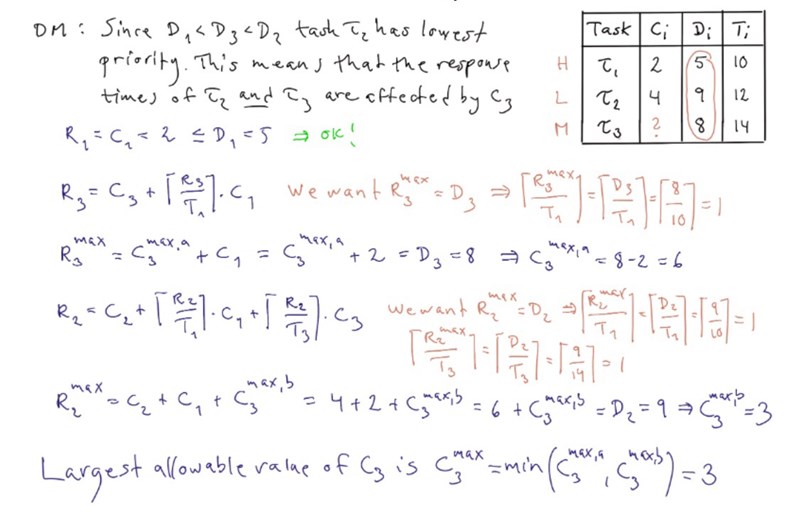 DM: Since D₁ < D₃ < D₂ task τ₂ has lowest
priority. This means that the response
times of τ₂ and τ₃ are affected by C₃
Task Cᵢ Dᵢ Tᵢ
H τ₁ 2 5 10
L τ₂ 4 9 12
M τ₃ ? 8 14
R₁ = C₁ = 2 ≤ D₁ = 5 ⇒ OK!
R₃ = C₃ + ⌈R₃/T₁⌉ · C₁ We want R₃^max = D₃ ⇒ ⌈R₃^max/T₁⌉ = ⌈D₃/T₁⌉ = ⌈8/10⌉ = 1
R₃^max = C₃^max,a + C₁ = C₃^max,a + 2 = D₃ = 8 ⇒ C₃^max,a = 8 - 2 = 6
R₂ = C₂ + ⌈R₂/T₁⌉ · C₁ + ⌈R₂/T₃⌉ · C₃ We want R₂^max = D₂ ⇒ ⌈R₂^max/T₁⌉ = ⌈D₂/T₁⌉ = ⌈9/10⌉ = 1
⌈R₂^max/T₃⌉ = ⌈D₂/T₃⌉ = ⌈9/14⌉ = 1
R₂^max = C₂ + C₁ + C₃^max,b = 4 + 2 + C₃^max,b = 6 + C₃^max,b = D₂ = 9 ⇒ C₃^max,b = 3
Largest allowable value of C₃ is C₃^max = min(C₃^max,a, C₃^max,b) = 3